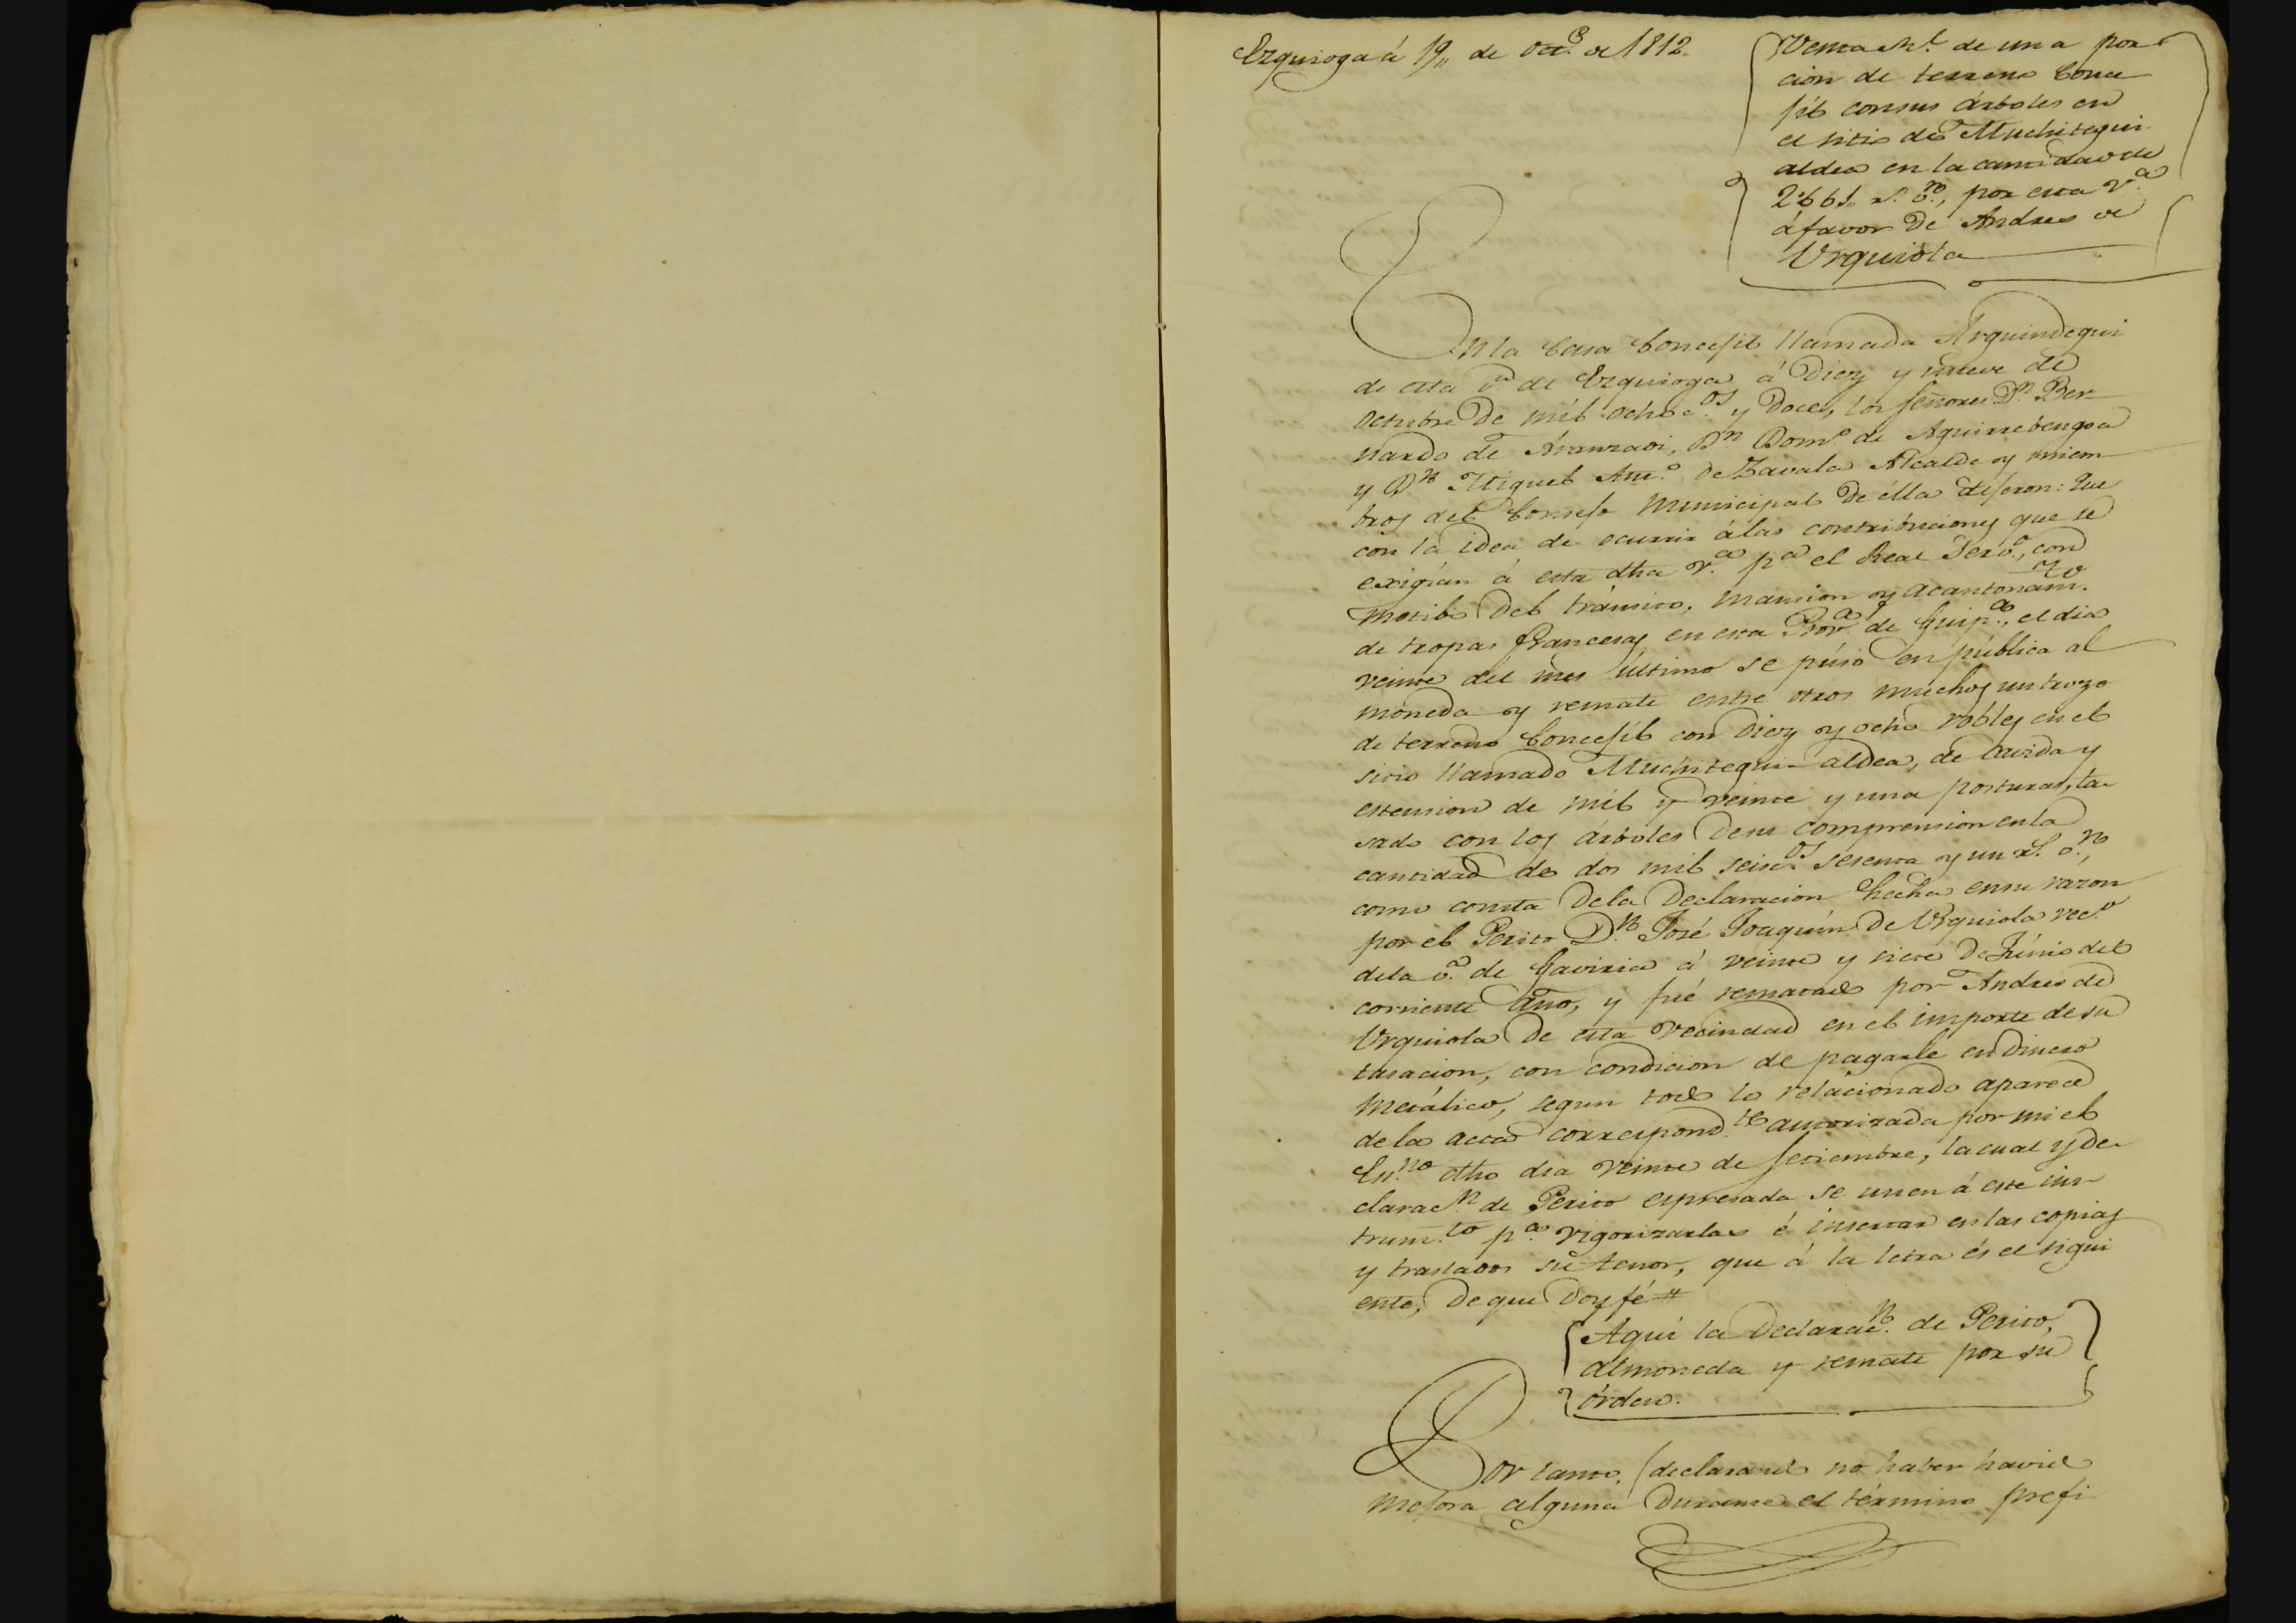 Ezquioga á 19,, de Oct.e de 1812.
Venta Rl. de una por
cion de terreno Conce
jil con sus árboles en
el sitio de Muchitegui
aldea en la cantidad de
2.661,, r.s v.n, por esta V.a
á favor de Andres de
Urquiola
En la Casa Concejil llamada Arguindegui
de esta v.a de Ezquioga á Diez y nueve de
Octubre de mil ochoc.os y Doce, los señores D.n Ber-
nardo de Aranzadi, D.n Dom.o de Aguirrebengoa
y D.n Miguel Ant.o de Zavala Alcalde y miem-
bros del Consejo Municipal de élla dijeron: Que
con la idea de ocurrir á las contribuciones que se
exigían á esta dha V.a p.a el Real Serv.o, con
motibo del tránsito, mansion y acantonam.to
de tropas francesas en esta Prov.a de Guip.a, el dia
veinte del mes último se púso en pública al
moneda y remate entre otros muchos un trozo
de terreno Concejil con Diez y ocho robles en el
sitio llamado Muchitegui-aldea, de cavida y
estension de mil y veinte y una posturas, ta-
sado con los árboles de su comprension en la
cantidad de dos mil seisc.os sesenta y un r.s v.n,
como consta de la Declaracion hecha en su razon
por el Perito D.n José Joaquín de Urquiola vec.o
de la v.a de Gaviria á veinte y siete de Júnio del
corriente año, y fué rematado por Andres de
Urquiola de esta vecindad en el importe de su
tasacion, con condicion de pagarle en Dinero
metálico, segun todo lo relacionado aparece
de la acta correspond.te autorizada por mi el
Es.no dho dia veinte de Setiembre, la cual y de-
clarac.n de Perito espresada se unen á este ins-
trum.to p.a vigorizarlas é insertar en las copias
y traslados su tenor, que á la letra és el sigui
ente, de que Doy fé #
Aquí la Declarac.n de Perito,
almoneda y remate por su
órden.
Por tanto, (declarando no haber havido
mejora alguna Durante el término prefi-